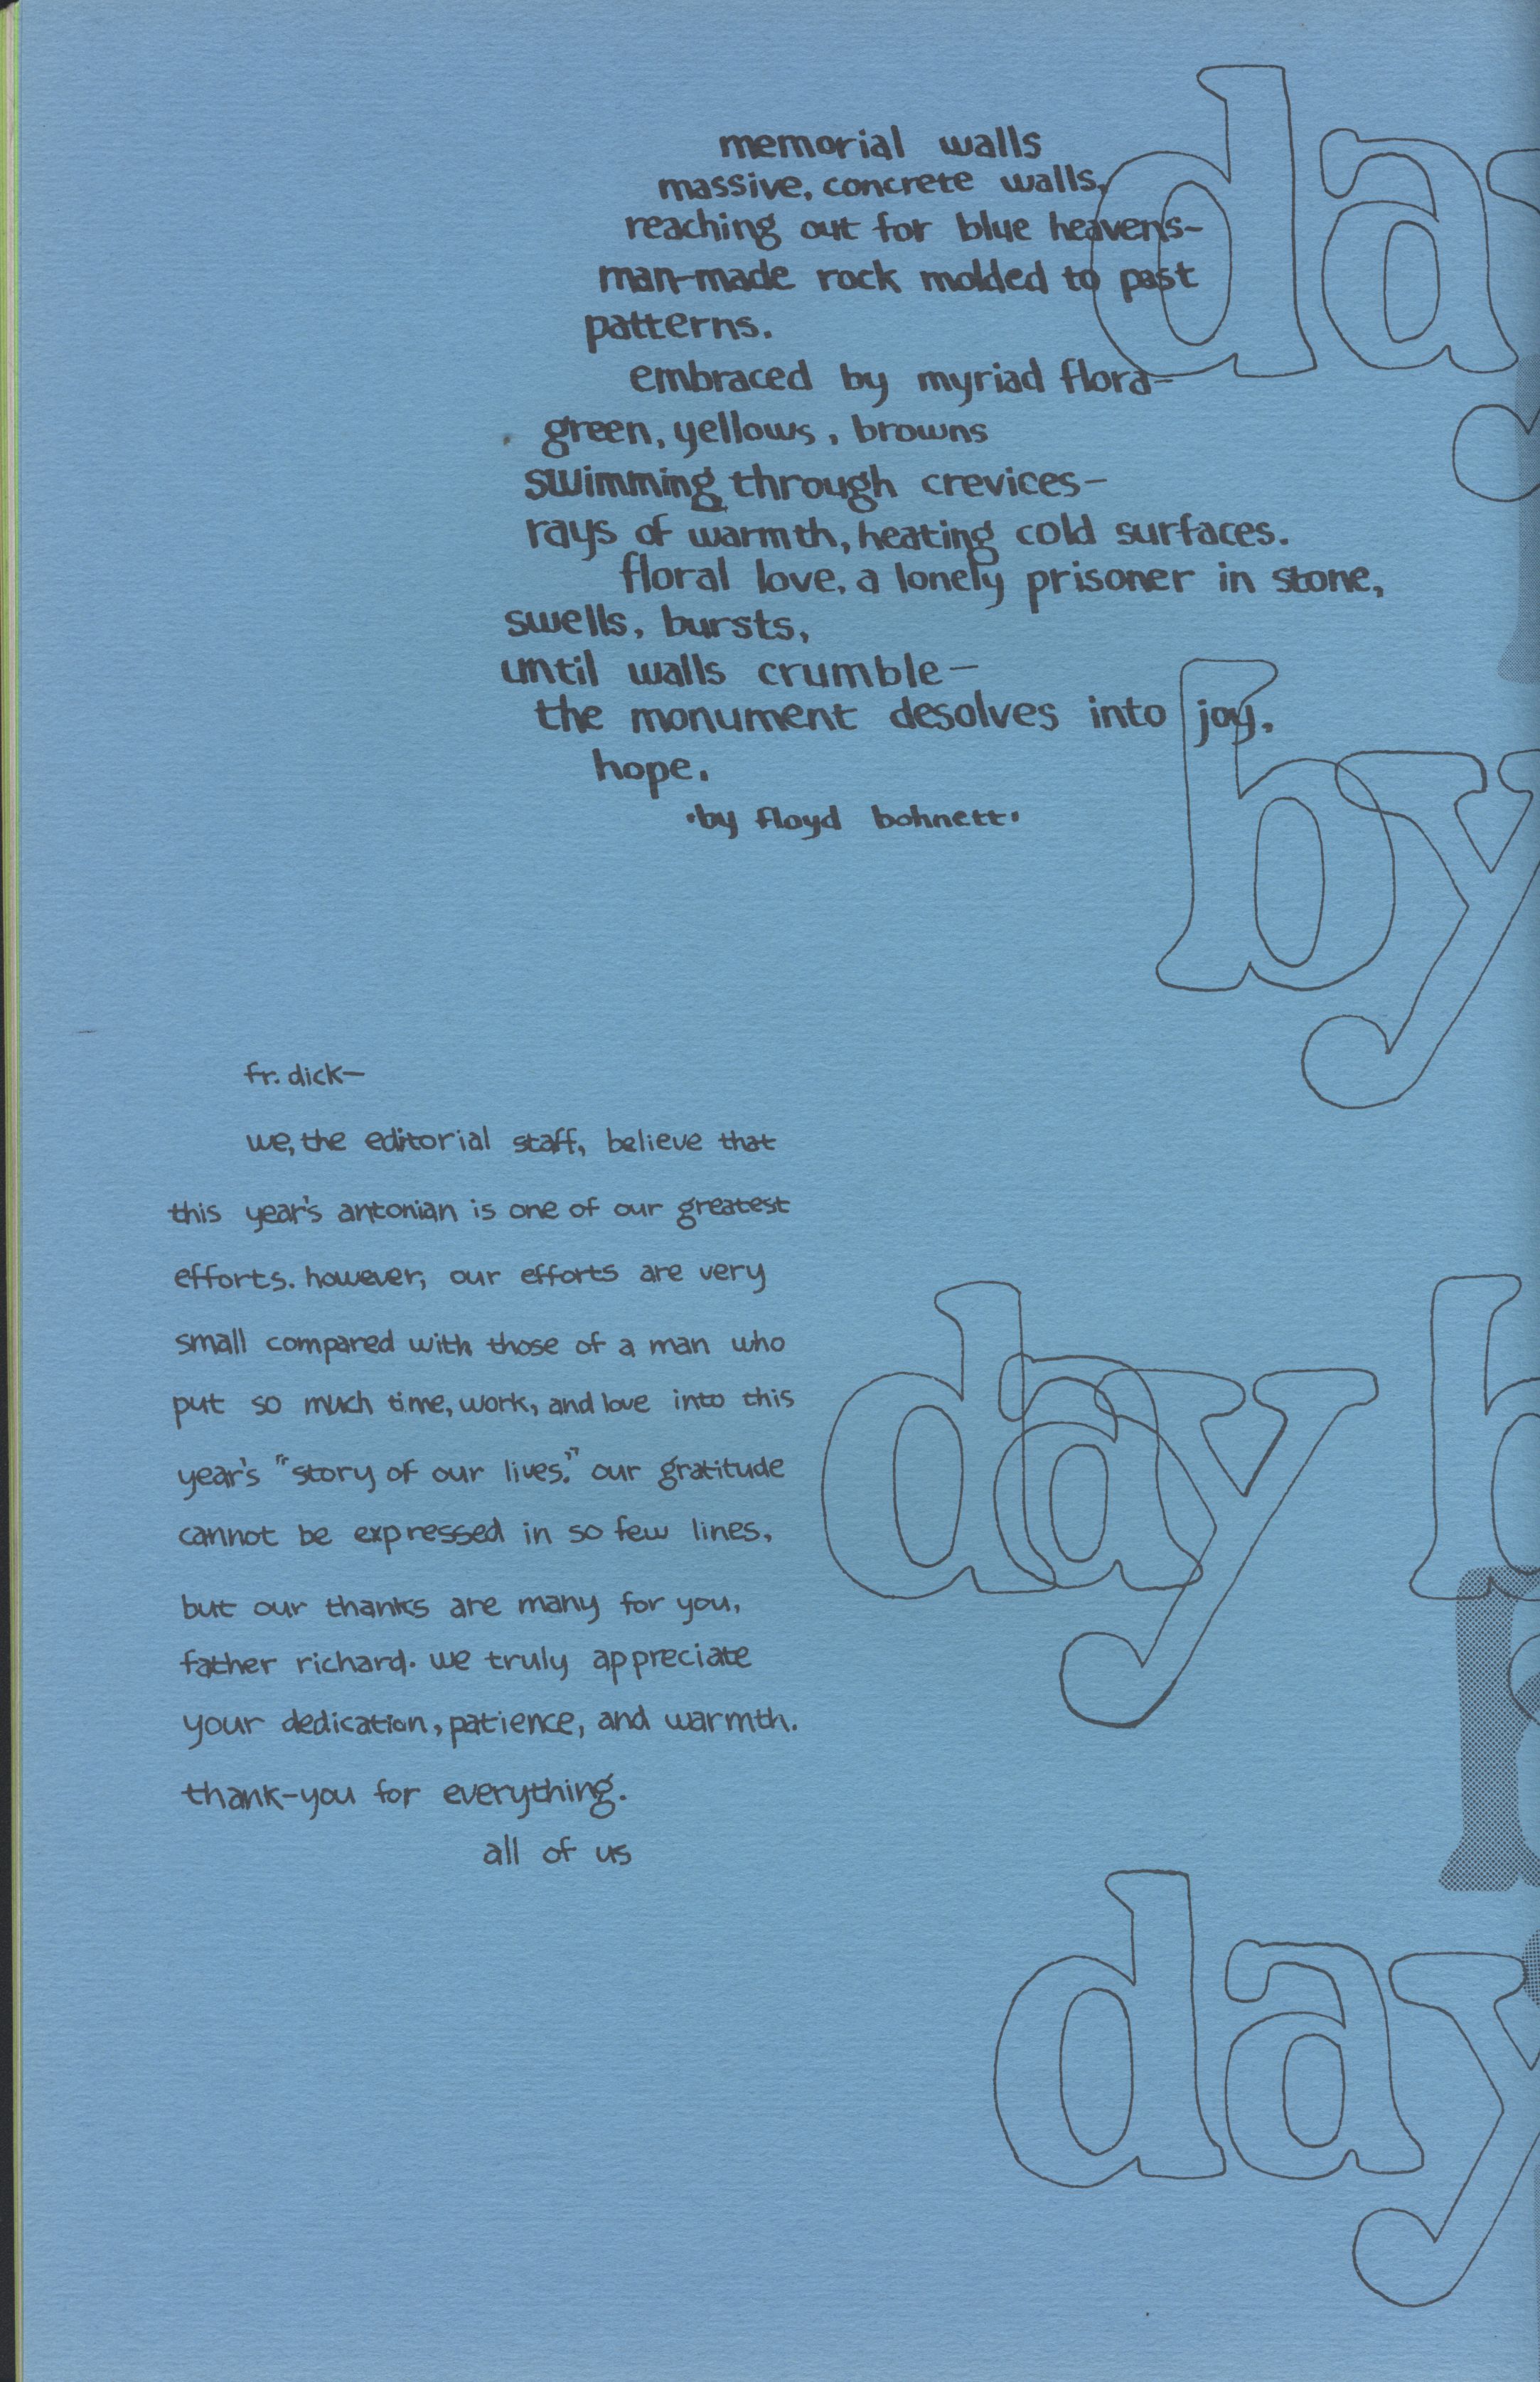 memorial walls
massive, concrete walls,
reaching out for blue heavens-
man-made rock molded to past
patterns.
embraced by myriad flora-
green, yellows, browns
swimming through crevices-
rays of warmth, heating cold surfaces.
floral love, a lonely prisoner in stone,
swells, bursts,
until walls crumble-
the monument desolves into joy,
hope.
·by floyd bohnett·
day
by
fr. dick-
we, the editorial staff, believe that
this year's antonian is one of our greatest
efforts. however, our efforts are very
small compared with those of a man who
put so much time, work, and love into this
year's "story of our lives." our gratitude
cannot be expressed in so few lines,
but our thanks are many for you,
father richard. we truly appreciate
your dedication, patience, and warmth.
thank-you for everything.
all of us
day b
day